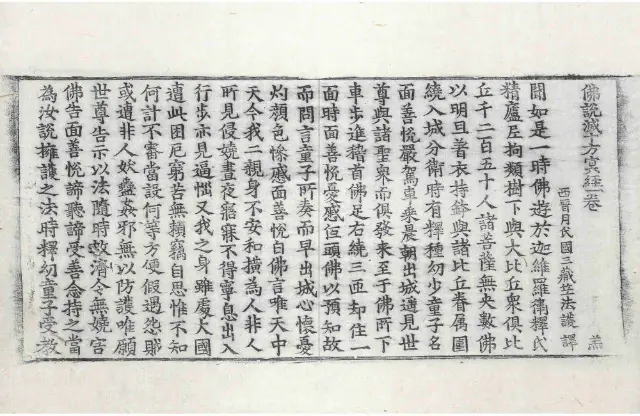 佛說滅十方冥經一卷
西晉月氏國三藏竺法護譯 羔
聞如是一時佛遊於迦維羅衛釋氏
精廬尼拘類樹下與大比丘衆俱比
丘千二百五十人諸菩薩無央數佛
以明旦著衣持鉢與諸比丘眷属圍
繞入城分衛時有釋種幼少童子名
面善悅嚴駕車乘晨朝出城遥見世
尊與諸聖衆而俱發来至于佛所下
車步進稽首佛足右繞三匝却住一
面時面善悅憂慼低頭佛以預知故
而問言童子所奏而早出城心懷憂
灼顔色慘慼面善悅白佛言唯天中
天今我二親身不安和横為人非人
所見侵嬈晝夜寤寐不得寧息出入
行步亦見逼惱又我之身雖處大國
遭此困厄窮苦無賴竊自思惟不知
何計不審當設何等方便假遇怨賊
或遭非人妖蠱姦邪無以防護唯願
世尊告示以法隨時救濟令無嬈害
佛告面善悅諦聽諦受善念持之當
為汝說擁護之法時釋幼童子受教